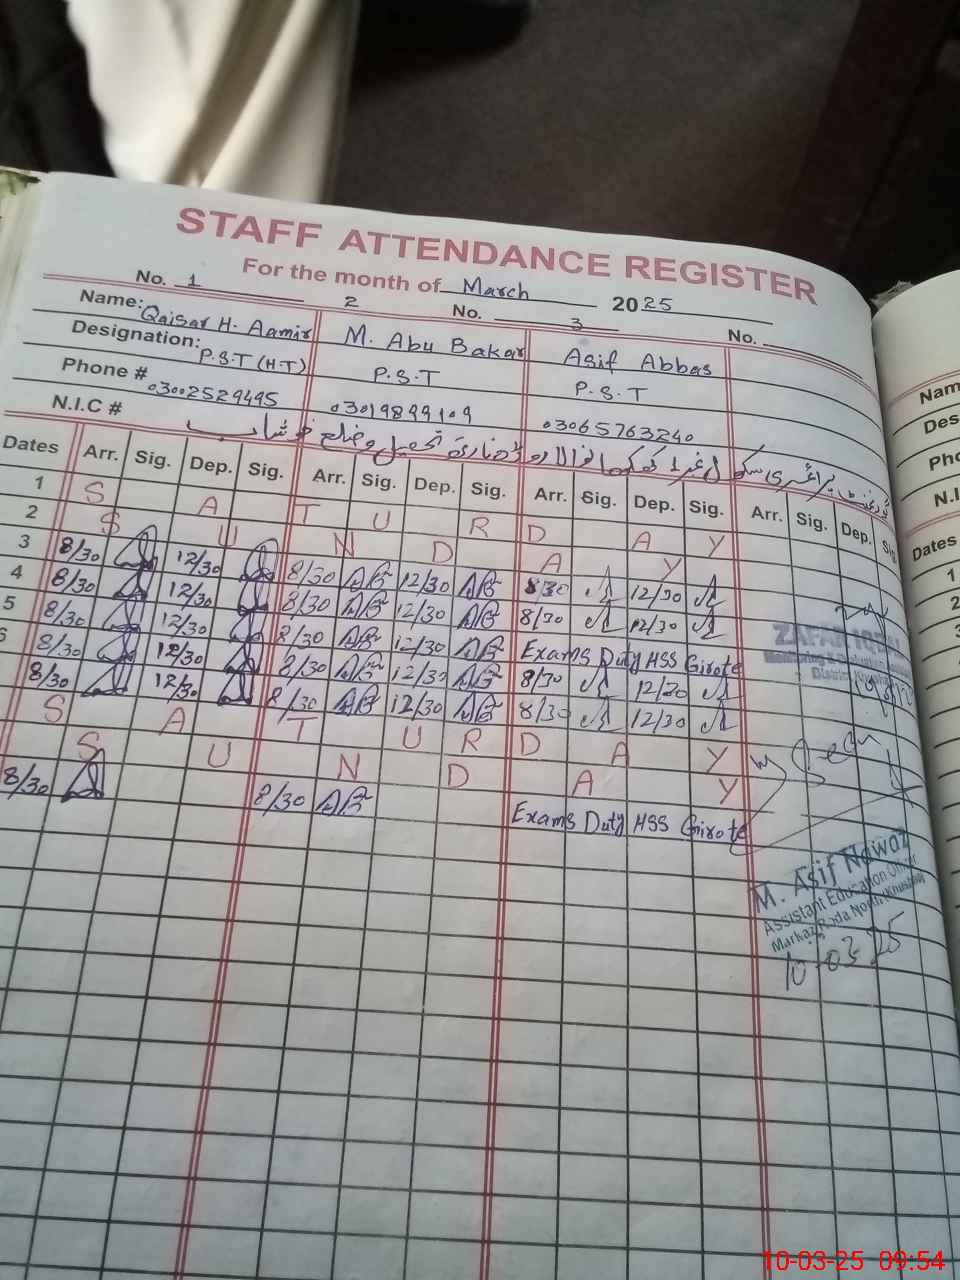 STAFF ATTENDANCE REGISTER
For the month of March 2025
No. 1 2 No. 3 No.
Name: Qaisar H. Aamir M. Abu Bakar Asif Abbas
Designation: P.S.T (H.T) P.S.T P.S.T
Phone # 03002529495 03019899109 03065763240
N.I.C #
Dates Arr. Sig. Dep. Sig. Arr. Sig. Dep. Sig. Arr. Sig. Dep. Sig. Arr. Sig. Dep. Sig.
1 S A T U R D A Y
2 S U N D A Y
3 8/30 12/30 8/30 12/30 8/30 12/30
4 8/30 12/30 8/30 12/30 8/30 12/30
5 8/30 12/30 8/30 12/30 Exams Duty HSS Girote
6 8/30 12/30 8/30 12/30 8/30 12/20
8/30 12/30 8/30 12/30 8/30 12/30
S A T U R D A Y
S U N D A Y
8/30 8/30 Exams Duty HSS Girote
ZAFAR IQBAL
M. Asif Nawaz
Assistant Education Officer
Markaz Roda North (Khushab)
10-03-25
Nam
Des
Pho
N.I
Dates
1
2
3
10-03-25 09:54